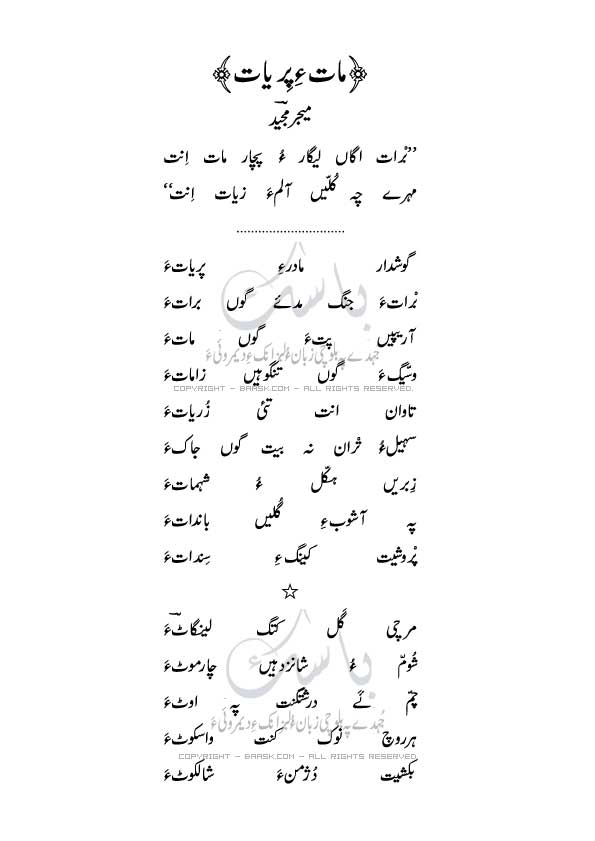 ﴿مات ءِ پِریات﴾
میجر مجید
”بْرات اگاں لیگار ءُ پچار مات اِنت
مہرے چہ گُلّیں آلمءَ زیات اِنت“
..............................
گوشدار مادرءِ پریاتءَ
بْراتءَ جنگ مدئے گوں براتءَ
آریپیں پتءَ گوں ماتءَ
وسّیگءَ گوں تنگوہیں زاماتءَ
تاوان انت تئی زُریاتءَ
سہیلءُ تْران نہ بیت گوں جاکءَ
زِبریں ہکّل ءُ شہماتءَ
پہ آشوبءِ گُلیں بانداتءَ
پْروشیت کینگ ءِ سِنداتءَ
☆
مرچی گَل کتگ لینگاٹءَ
شُومّ ءُ شانزدہیں چارموٹءَ
چمّ ئے درشتکنت پہ اوٹءَ
ہرروچ نوک کنت واسکوٹءَ
بکشیت دُژمنءَ شالکوٹءَ
باسک
جُہدے پہ بلوچی زبان ءُ لبزانک ءِ دیمروئی ءَ
COPYRIGHT - BAASK.COM - ALL RIGHTS RESERVED.
باسک
جُہدے پہ بلوچی زبان ءُ لبزانک ءِ دیمروئی ءَ
COPYRIGHT - BAASK.COM - ALL RIGHTS RESERVED.